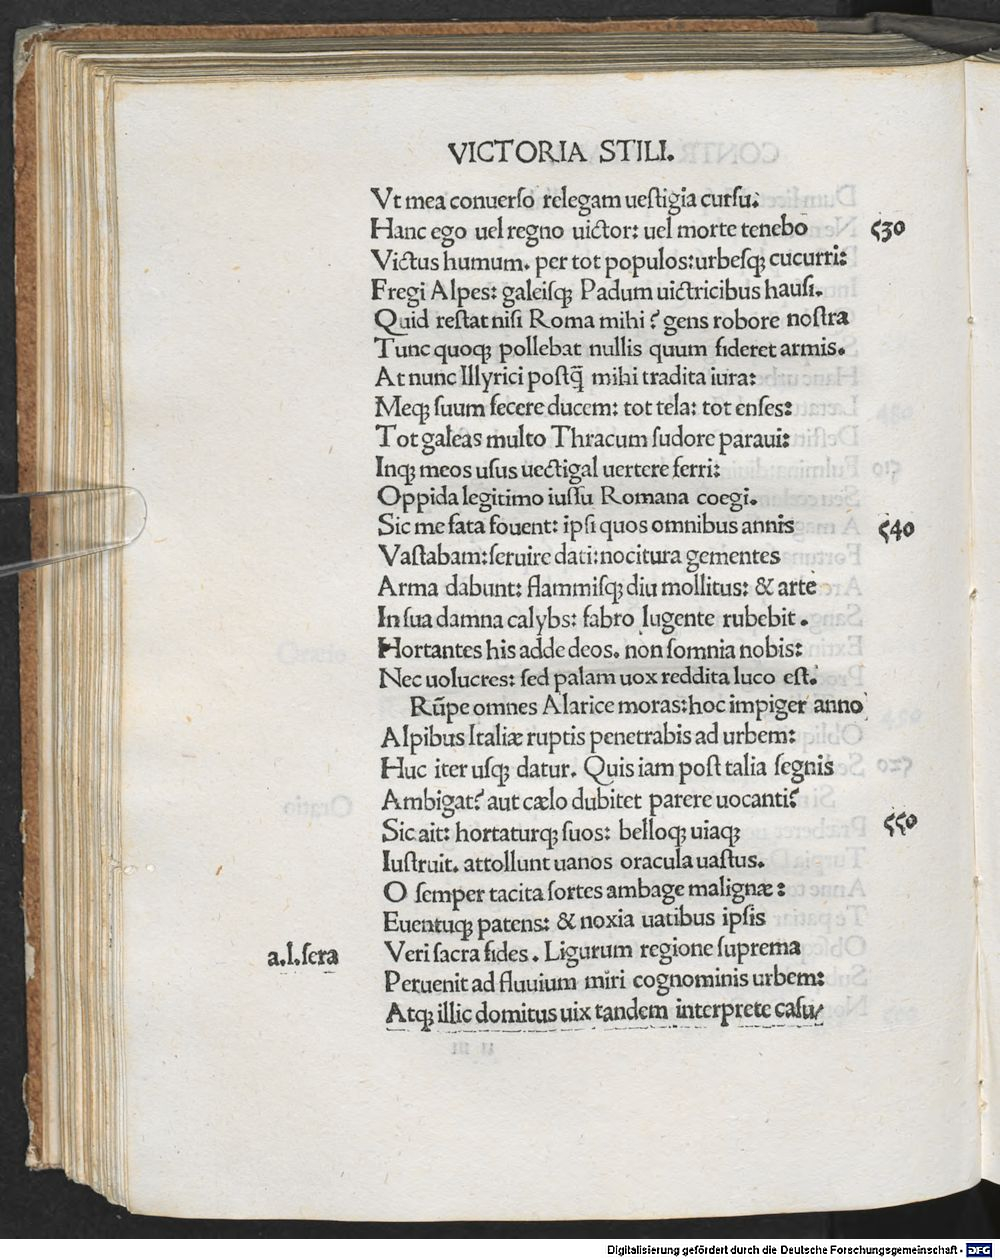 VICTORIA STILI.
Vt mea conuerso relegam uestigia cursu.
Hanc ego uel regno uictor: uel morte tenebo 530
Victus humum. per tot populos: urbesqȝ cucurri:
Fregi Alpes: galeisqȝ Padum uictricibus hausi.
Quid restat nisi Roma mihi? gens robore nostra
Tunc quoqȝ pollebat nullis quum fideret armis.
At nunc Illyrici postq̄ mihi tradita iura:
Meqȝ suum fecere ducem: tot tela: tot enses:
Tot galeas multo Thracum sudore paraui:
Inqȝ meos usus uectigal uertere ferri:
Oppida legitimo iussu Romana coegi.
Sic me fata fouent: ipsi quos omnibus annis 540
Vastabam: seruire dati: nocitura gementes
Arma dabunt: flammisqȝ diu mollitus: & arte
In sua damna calybs: fabro lugente rubebit.
Hortantes his adde deos. non somnia nobis:
Nec uolucres: sed palam uox reddita luco est.
Rūpe omnes Alarice moras: hoc impiger anno
Alpibus Italiæ ruptis penetrabis ad urbem:
Huc iter usqȝ datur. Quis iam post talia segnis
Ambigat? aut cælo dubitet parere uocanti?
Sic ait: hortaturqȝ suos: belloqȝ uiaqȝ 550
Iustruit. attollunt uanos oracula uastus.
O semper tacita sortes ambage malignæ:
Euentuqȝ patens: & noxia uatibus ipsis
a.l.sera Veri sacra fides. Ligurum regione suprema
Peruenit ad fluuium miri cognominis urbem:
Atqȝ illic domitus uix tandem interprete casu/
Digitalisierung gefördert durch die Deutsche Forschungsgemeinschaft - DFG